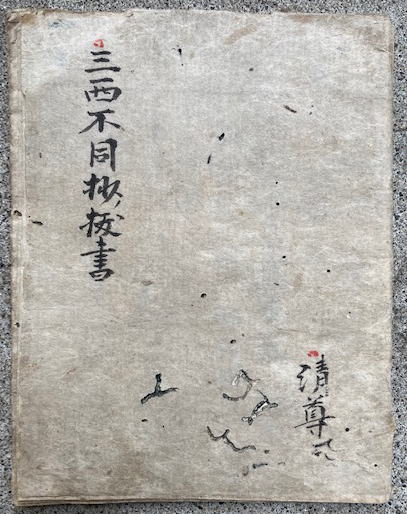 三西不同抄抜書
清尊